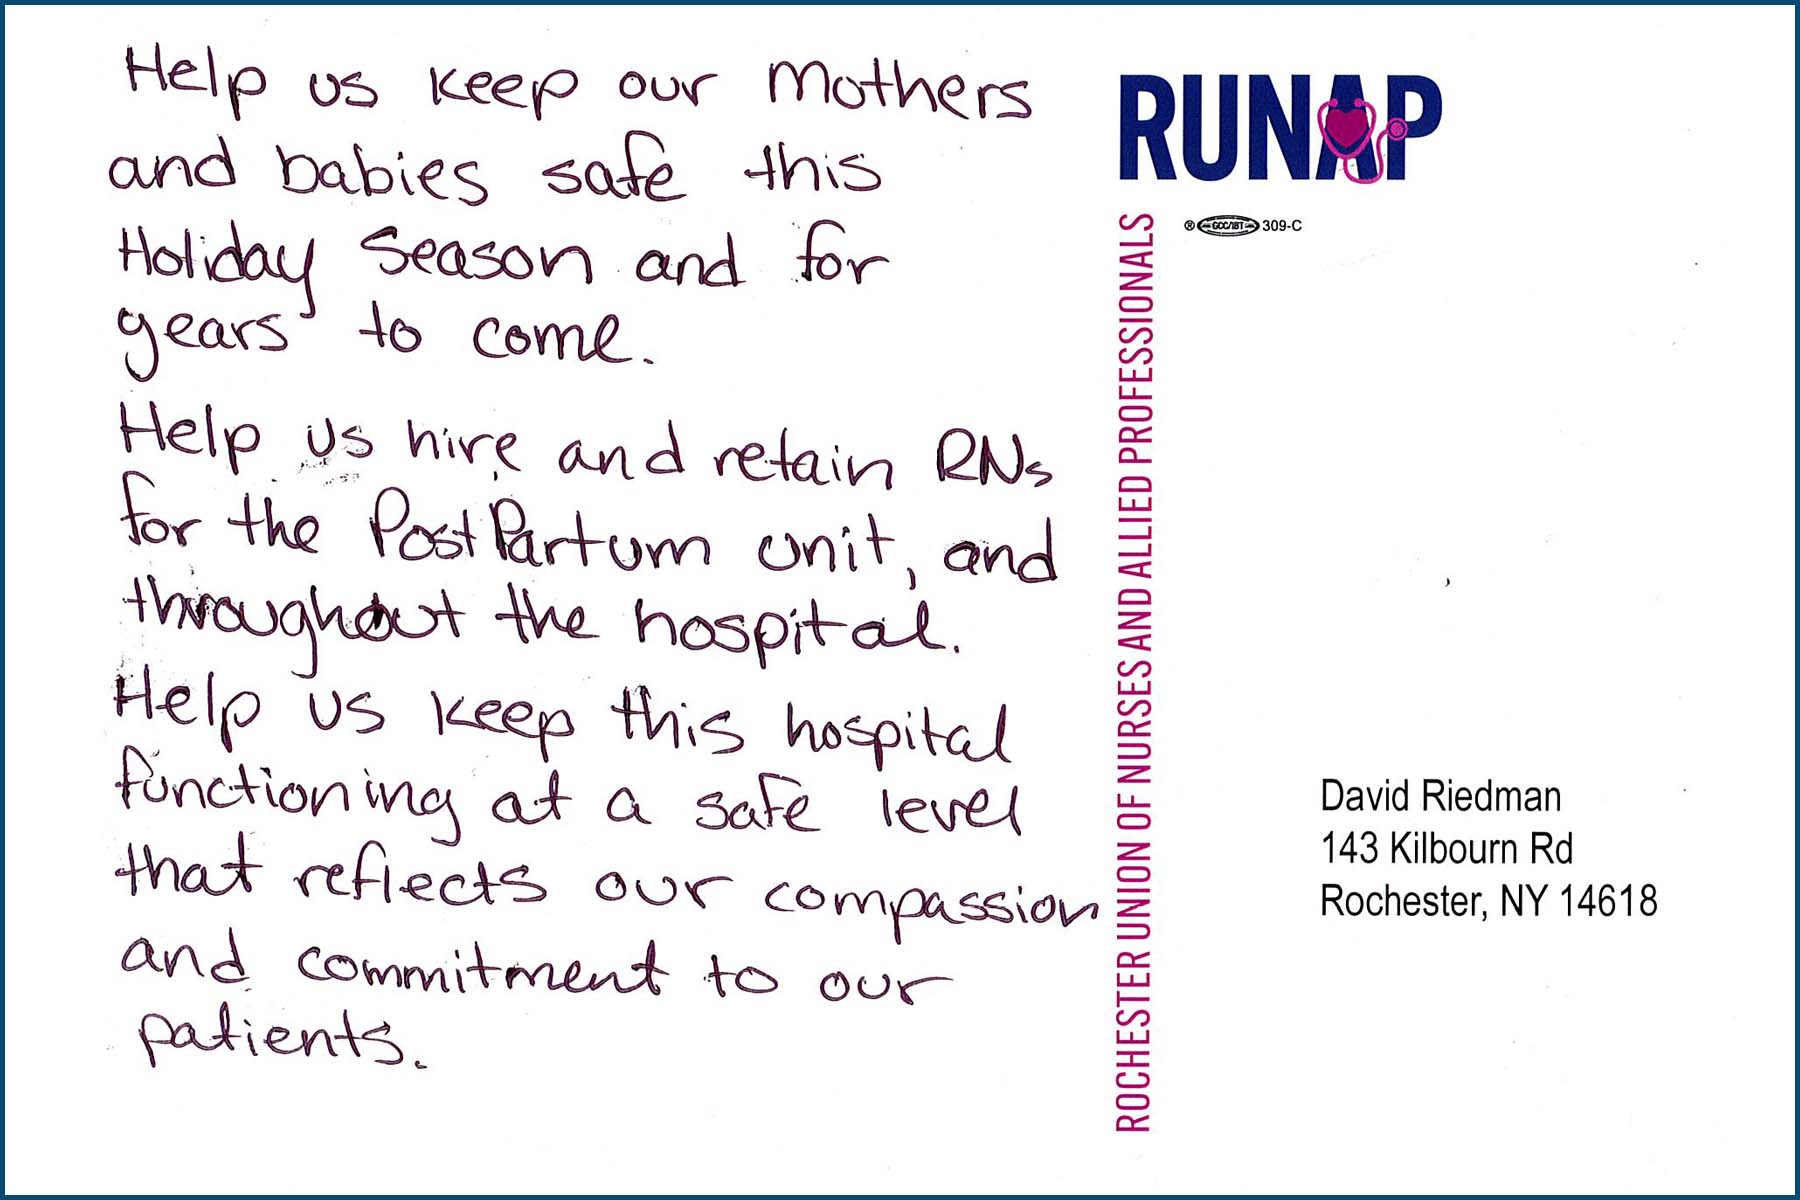 Help us keep our Mothers
and babies safe this
Holiday Season and for
years to come.
Help us hire and retain RNs
for the PostPartum unit, and
throughout the hospital.
Help us keep this hospital
functioning at a safe level
that reflects our compassion
and commitment to our
patients.
RUNAP
® GCC/IBT 309-C
ROCHESTER UNION OF NURSES AND ALLIED PROFESSIONALS
David Riedman
143 Kilbourn Rd
Rochester, NY 14618